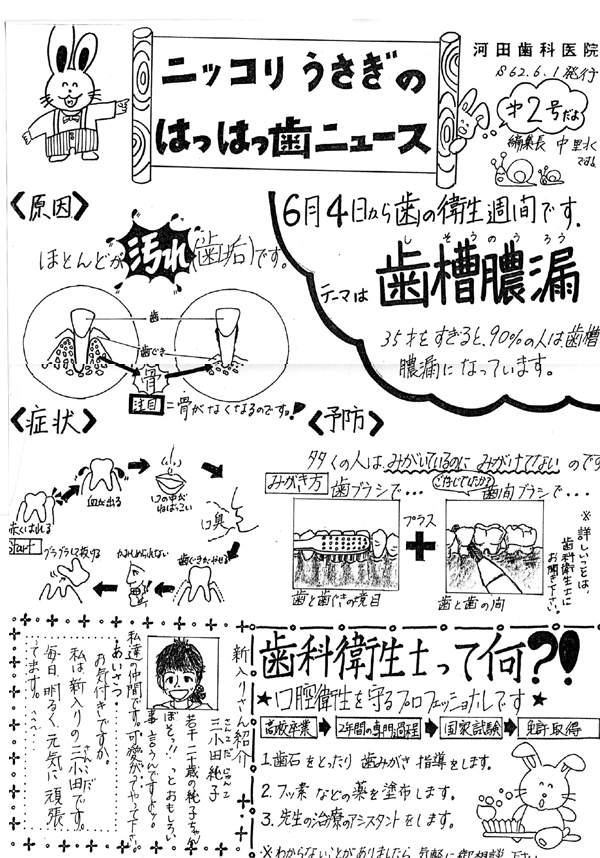 河田歯科医院
S62.6.1発行
ニッコリうさぎの
はっはっ歯ニュース
才2号だよ
編集長 中里水
ですよ
6月4日から歯の衛生週間です.
テーマは
しそうのうろう
歯槽膿漏
35才をすぎると、90%の人は歯槽
膿漏になっています。
〈原因〉
ほとんどが汚れ(歯垢)です。
歯
歯ぐき
骨
注目=骨がなくなるのです。!
〈症状〉
赤くはれる
Start
血が出る
口の中が
ねばっこい
口臭
歯ぐきがやせる
かみしめられない
グラグラして抜ける
〈予防〉
多くの人はみがいているのにみがけてないのです
みがき方
歯ブラシで・・・
プラス
ご存じでしたか?
歯間ブラシで・・・
歯と歯ぐきの境目
歯と歯の間
※詳しいことは
歯科衛生士に
お聞き下さい。
新入りさん紹介
さんこだ じゅんこ
三小田純子
若干二十歳の純子ちゃん
ぼそっ!!っとおもしろい
事言うんですよ。
私達の仲間です。可愛がってやって下さい。
あいさつ
お気付きですか。
私は新入りの三小田です。
さんこだ
毎日、明るく、元気に頑張
ってます。
歯科衛生士って何?!
★口腔衛生を守るプロフェッショナルです★
高校卒業
2年間の専門過程
国家試験
免許取得
1.歯石をとったり歯みがき指導をします。
2.フッ素などの薬を塗布します。
3.先生の治療のアシスタントをします。
※わからないことがありましたら、気軽に御相談下さい